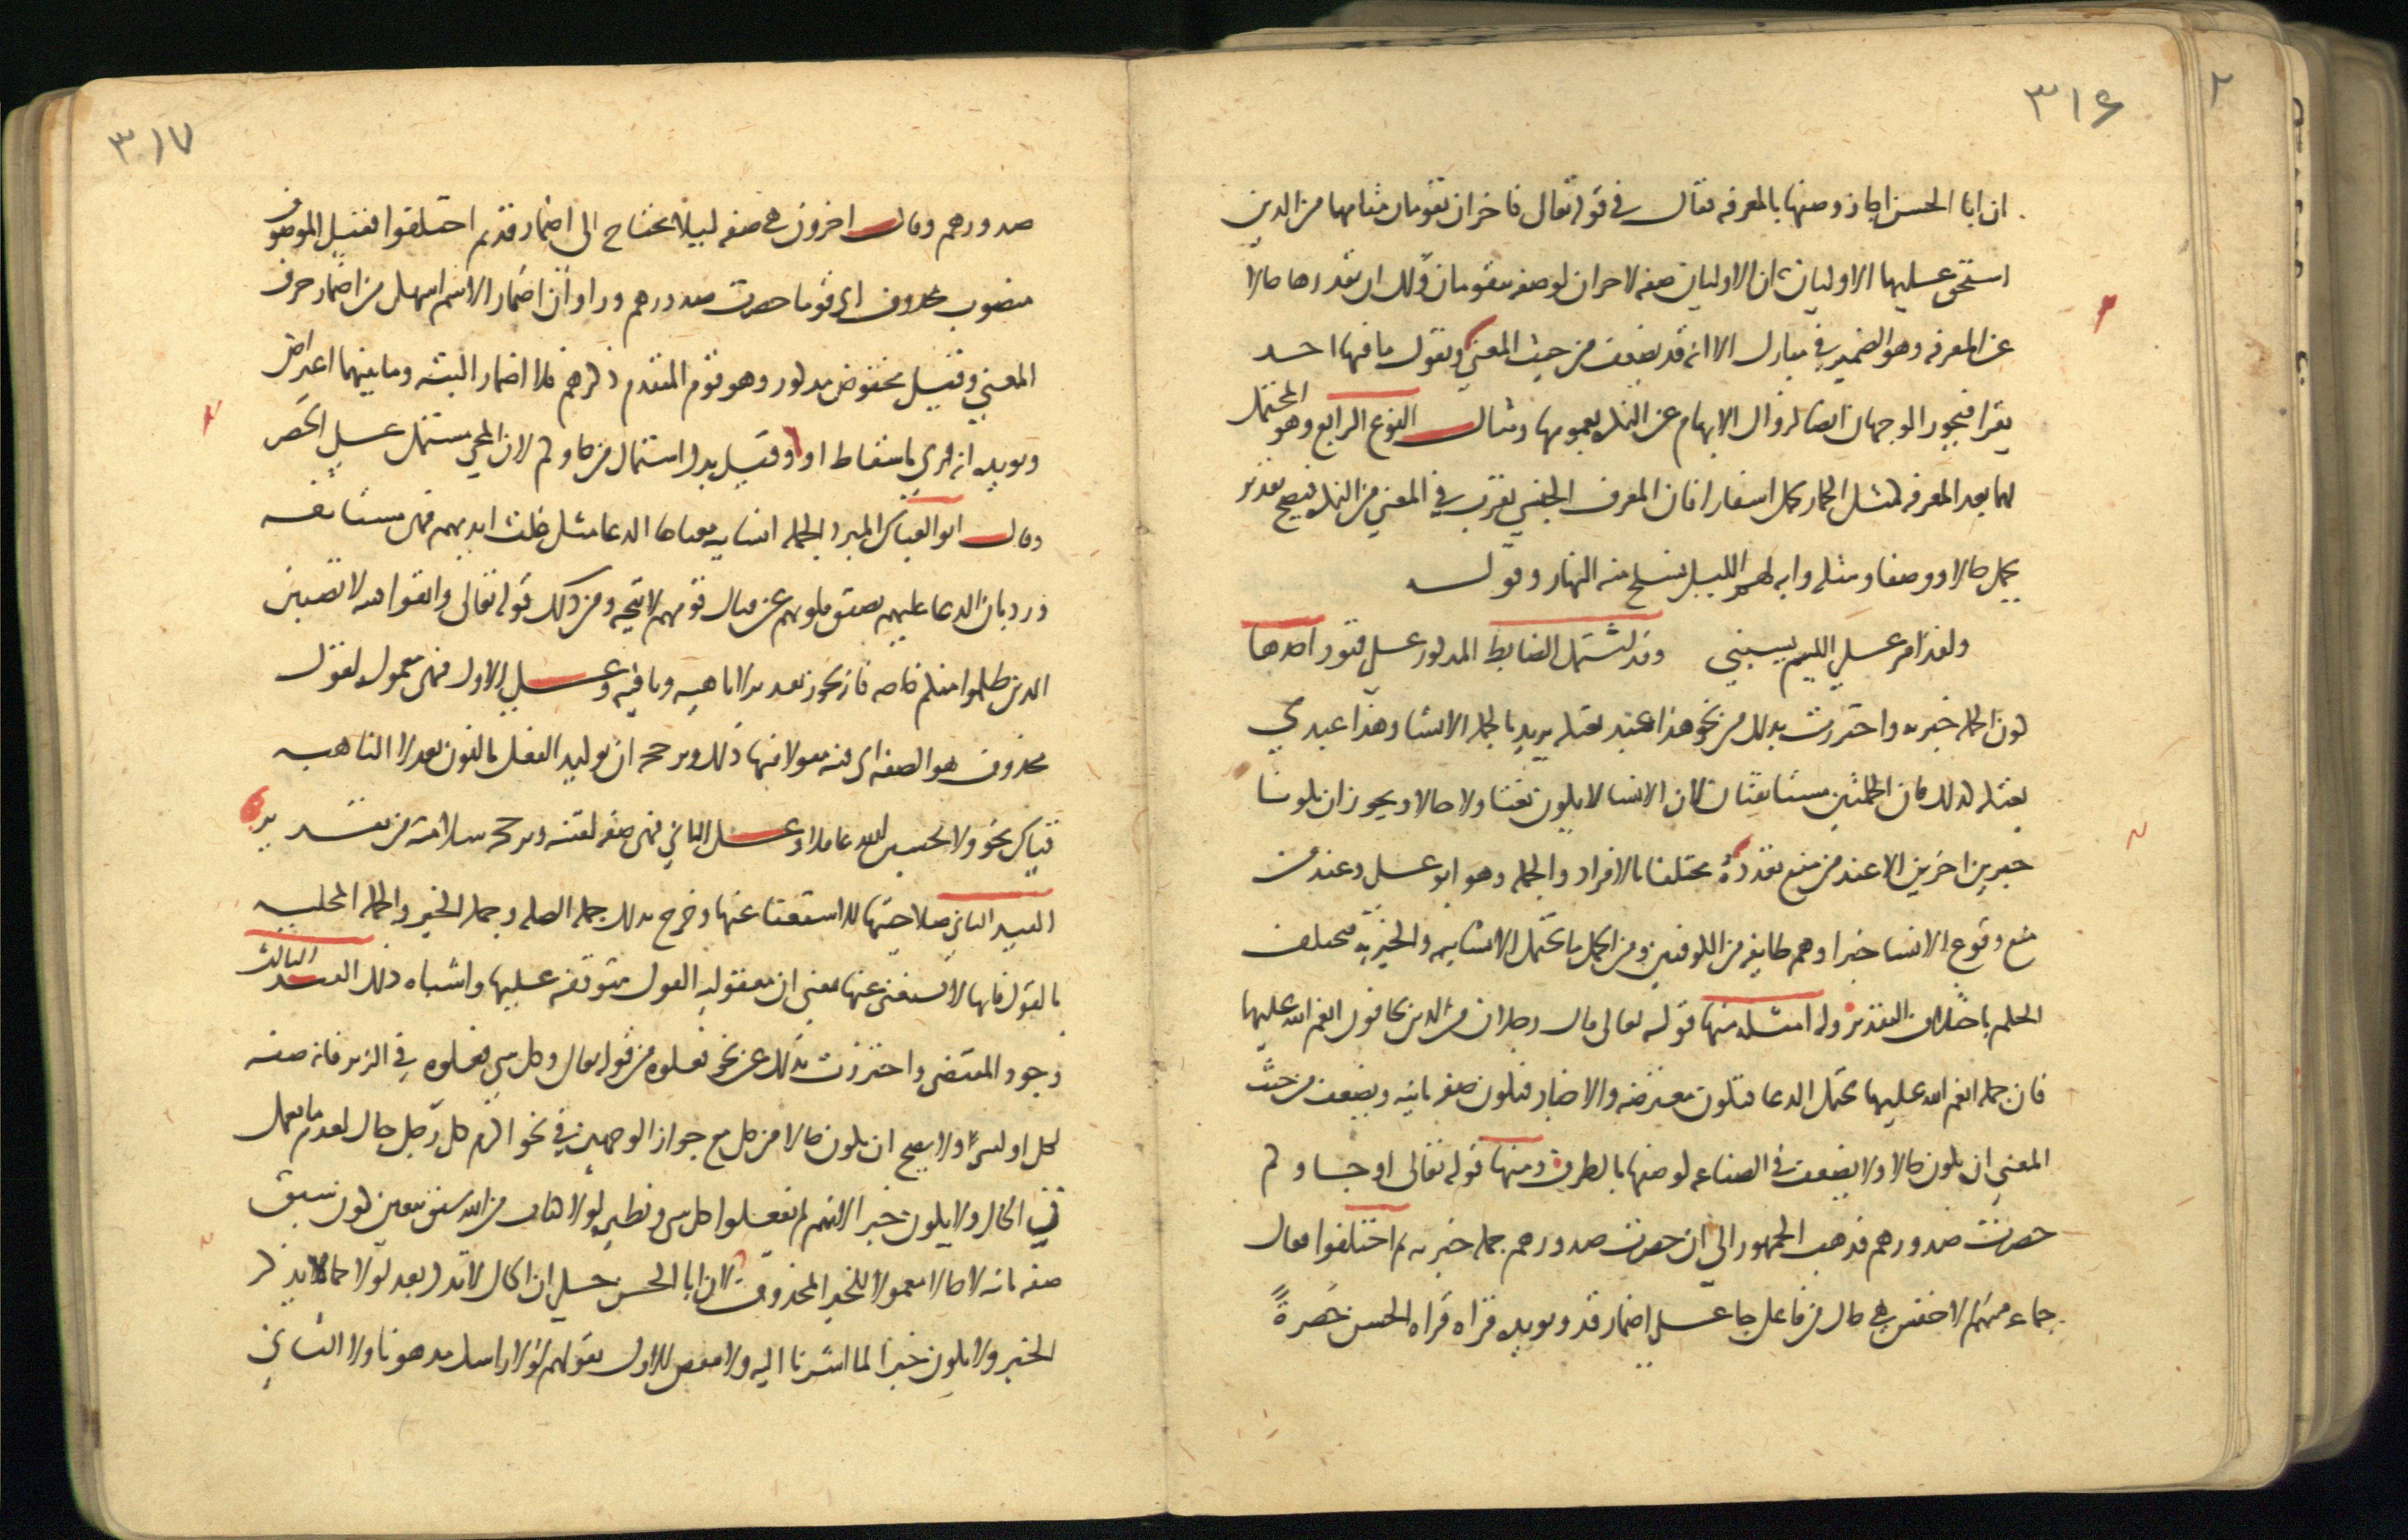 ٣١٦
ان ابا الحسن اجاز وصفها بالمعرفه فقال في قوله تعالى فاخران يقومان مقامهما من الذين
استحق عليهما الاوليان ان الاوليان صفه لاخران لوصفه بيقومان ولك ان تقدرها حالا
عن المعرفه وهو الضمير في تبارك الا انه قد يضعف من حيث المعنى وتقول ما فيها احد
يقرا فيجوز الوجهان ايضا لزوال الابهام عن النكره بعمومها ومثال النوع الرابع وهو المحتمل
لهما بعد المعرفه كمثل الحمار يحمل اسفارا فان المعرف الجنسي يقرب في المعنى من النكره فيصح تقدير
يحمل حالا ووصفا ومثله وايه لهم الليل نسلخ منه النهار وقوله
ولقد امر على اللئيم يسبني وقد اشتمل الضابط المذكور على قيود احدها
كون الجمله خبريه واحترزت بذلك من نحو هذا عبد بعتكه يريد بالجمله الانشا وهذا عبدي
بعتكه كذلك فان الجملتين مستانفتان لان الانشا لا يكون نعتا ولا حالا ويجوز ان يكونا
خبرين اخرين الا عند من منع تعدده مختلفا بالافراد والجمله وهو ابو علي وعند من
منع وقوع الانشا خبرا وهم طايفه من الكوفيين ومن الجمل ما يحتمل الانشاييه والخبريه فيختلف
الحكم باختلاف التقدير وله امثله منها قوله تعالى قال رجلان من الذين يخافون انعم الله عليهما
فان جمله انعم الله عليهما تحتمل الدعا فتكون معترضه والاخبار فتكون صفه ثانيه ويضعف من حيث
المعنى ان يكون حالا ولا يضعف في الصناعه لوصفها بالظرف ومنها قوله تعالى او جاوكم
حصرت صدورهم فذهب الجمهور الى ان حصرت صدورهم جمله خبريه ثم اختلفوا فقال
جماعه منهم الاخفش هي حال من فاعل جا على اضمار قد ويويده قراه قراه الحسن حصرةً
٣١٧
صدورهم وقال اخرون هي صفه ليلا يحتاج الى اضمار قد ثم اختلفوا فقيل الموصوف
منصوب محذوف اي قوما حصرت صدورهم وراوا ان اضمار الاسم اسهل من اضمار حرف
المعنى وقيل مخفوض مذكور وهو قوم المتقدم ذكرهم فلا اضمار البته وما بينهما اعتراض
ويويده انه قري باسقاط او وقيل بدل اشتمال من جاوكم لان المجي مشتمل على الحصر
وقال ابو العباس المبرد الجمله انشاييه معناها الدعا مثل غلت ايديهم فهي مستانفه
ورد بان الدعا عليهم بضيق قلوبهم عن قتال قومهم لا يتجه ومن ذلك قوله تعالى واتقوا فتنه لا تصيبن
الذين ظلموا منكم خاصه فانه يجوز تقدير لا ناهيه ونافيه وعلى الاول فهي معموله لقول
محذوف هو الصفه اي فتنه مقولا فيها ذلك ويرجحه ان توكيد الفعل بالنون بعد لا الناهيه
قياس نحو ولا تحسبن الله غافلا وعلى الثاني فهي صفه لفتنه ويرجحه سلامته من تقدير
القيد الثاني صلاحيتها للاستغنا عنها وخرج بذلك جمله الصله وجمله الخبر والجمله المحكيه
بالقول فانها لا يستغنى عنها بمعنى ان معقوليه القول متوقفه عليها واشباه ذلك القيد الثالث
وجود المقتضي واحترزت بذلك عن نحو فعلوه من قوله تعالى وكل شي فعلوه في الزبر فانه صفه
لكل او لشي ولا يصح ان يكون حالا من كل مع جواز الوجهين في نحو اكرم كل رجل جاك لعدم ما يعمل
في الحال ولا يكون خبرا لانهم لم يفعلوا كل شي ونظيره لولا كتاب من الله سبق يتعين كون سبق
صفه ثانيه لا حالا معمولا للخبر المحذوف لان ابا الحسن حكى ان الحال لا تذكر بعد لولا كما لا يذكر
الخبر ولا يكون خبرا لما اشرنا اليه ولا ينقض الاول بقولهم لولا راسك مدهونا ولا الثاني